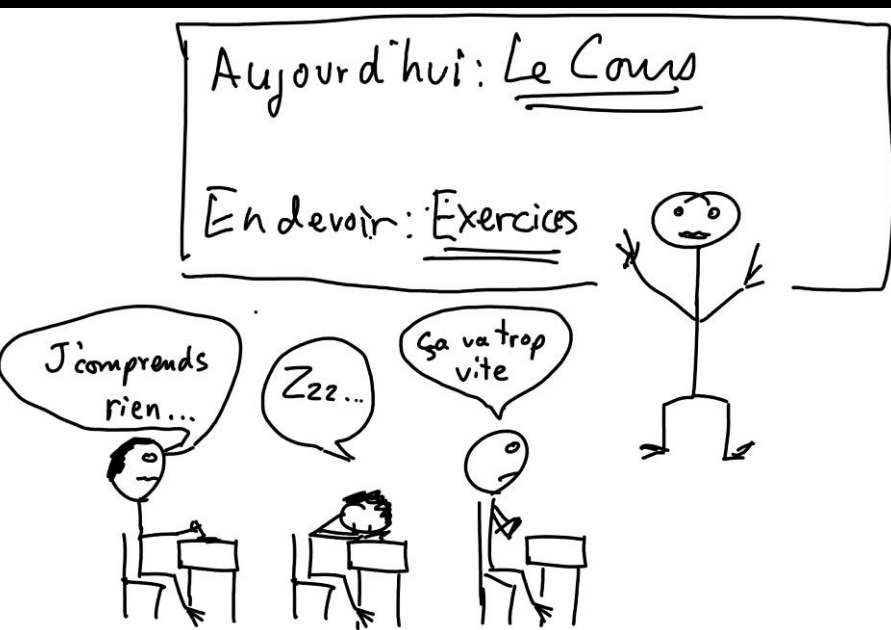 Aujourd'hui: Le Cours
En devoir: Exercices
J'comprends
rien...
Zzz...
ça va trop
vite